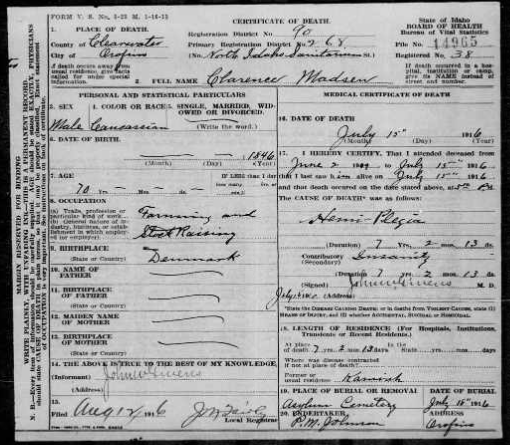 FORM V. S. No. 5-25 M. 1-18-13
CERTIFICATE OF DEATH.
State of Idaho
BOARD OF HEALTH
Bureau of Vital Statistics
1. PLACE OF DEATH.
County of Clearwater
City of Orofino
Registration District No. 90
Primary Registration District No.
File No. 14965
Registered No. 38
(No. North Idaho Sanitarium St.)
If death occurs away from usual residence, give facts called for under special information.
If death occurred in a hospital, institution, or camp, give its NAME instead of street and number.
FULL NAME Clarence Madsen
PERSONAL AND STATISTICAL PARTICULARS
MEDICAL CERTIFICATE OF DEATH.
3. SEX
4. COLOR OR RACE
5. SINGLE, MARRIED, WIDOWED OR DIVORCED.
Male Caucassian
(Write the word.)
6. DATE OF BIRTH.
1846
(Month) (Day) (Year)
7. AGE
IF LESS than 1 day
70 Yrs. Mos. ds.
how many hrs. or min.
8. OCCUPATION
(a) Trade, profession or particular kind of work
(b) General nature of industry, business, or establishment in which employed (or employer)
Farming and
Stock Raising
9. BIRTHPLACE
(State or Country) Denmark
10. NAME OF FATHER
11. BIRTHPLACE OF FATHER
(State or Country)
12. MAIDEN NAME OF MOTHER
13. BIRTHPLACE OF MOTHER
(State or Country)
14. THE ABOVE IS TRUE TO THE BEST OF MY KNOWLEDGE.
(Informant) John W Givens
(Address)
15.
Filed Aug 1916
Local Registrar
16. DATE OF DEATH
July 15" 1916
(Month) (Day) (Year)
17. I HEREBY CERTIFY, That I attended deceased from
June 2 1909 to July 15" 1916
that I last saw him alive on July 15" 1916
and that death occurred on the date stated above, at
The CAUSE OF DEATH* was as follows:
Hemi-Plegia
(Duration) 7 Yrs. 2 mos. 13 ds.
Contributory Insanity
(Secondary)
(Duration) 7 yrs. 2 mos. 13 ds.
(Signed) John W Givens M. D.
*State the Disease Causing Death; or in deaths from Violent Causes, state (1) Means of Injury, and (2) whether Accidental, Suicidal or Homicidal.
18. LENGTH OF RESIDENCE (For Hospitals, Institutions, Transients or Recent Residents.)
At place of death 7 yrs. 2 mos. 13 days. In the State yrs. mos. ds.
Where was disease contracted
if not at place of death?
Former or usual residence Kamiah
19. PLACE OF BURIAL OR REMOVAL
DATE OF BURIAL
Asylum Cemetery July 15" 1916
20. UNDERTAKER
(Address)
P. M. Johnson Orofino
MARGIN RESERVED FOR BINDING
WRITE PLAINLY, WITH UNFADING INK—THIS IS A PERMANENT RECORD.
N. B.—Every item of information should be carefully supplied. AGE should be stated EXACTLY. PHYSICIANS should state CAUSE OF DEATH in plain terms, so that it may be properly classified. Exact statement of OCCUPATION is very important. See instructions on back of certificate.